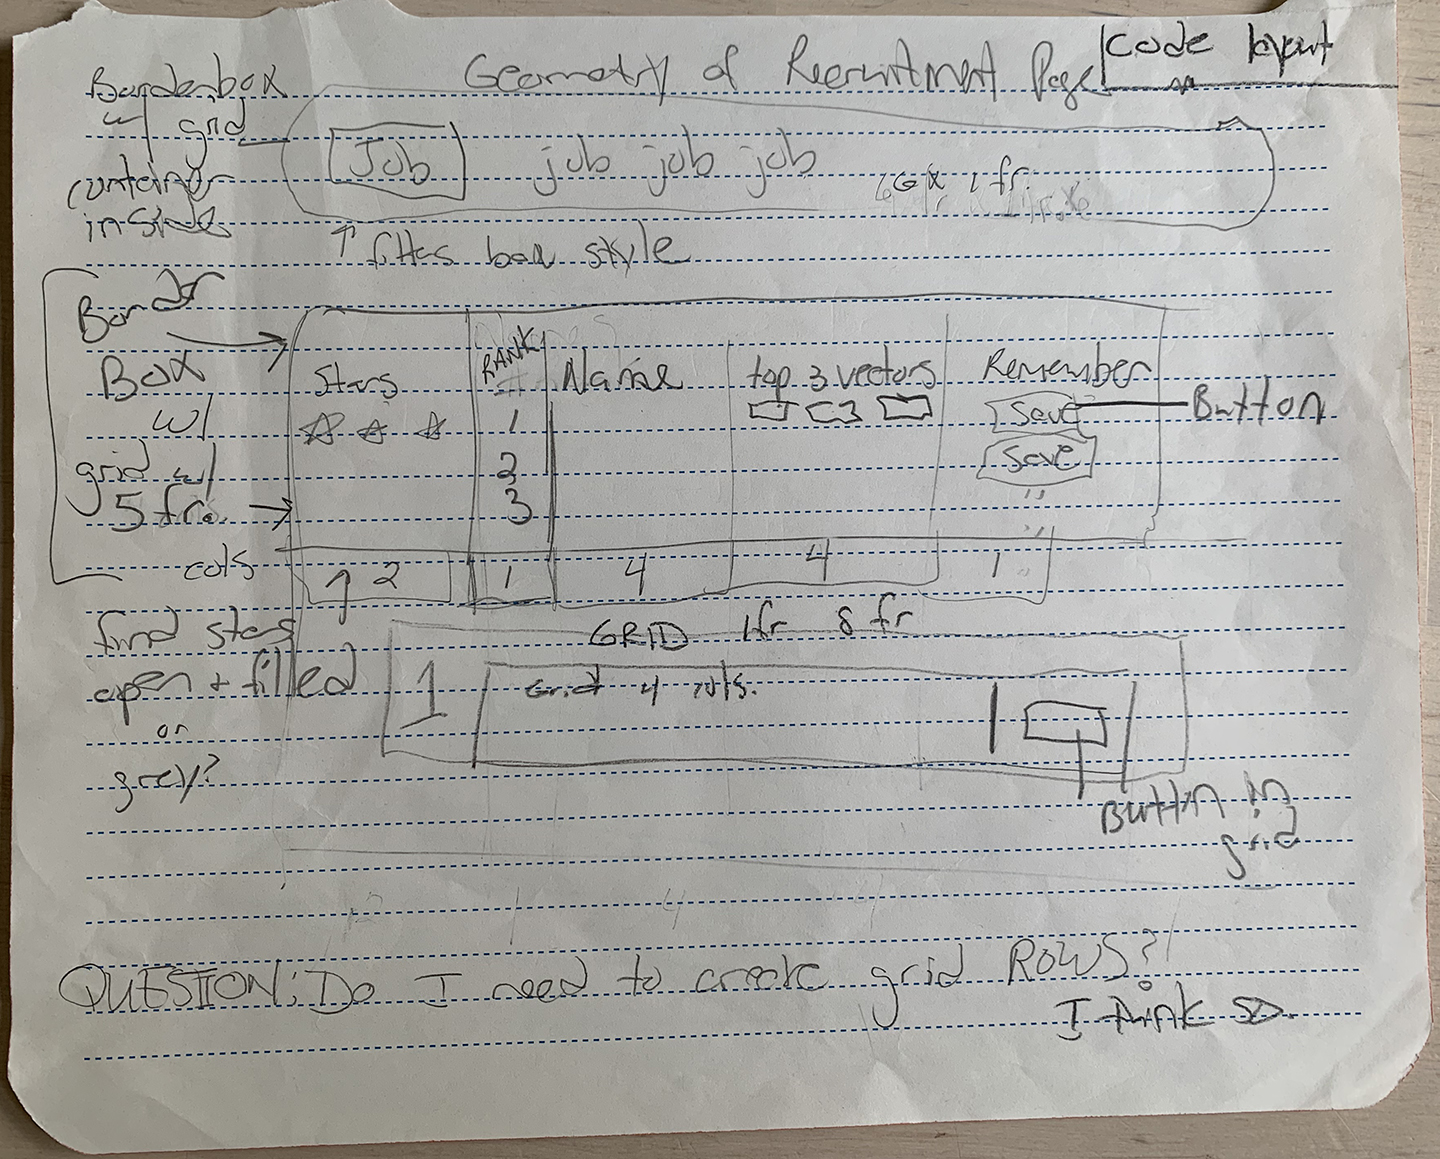 Geometry of Recruitment Page
Code layout
Borderbox
w/ grid
container
inside
Job job job job
1 fr.
↑ box style
Border
Box
w/
grid w/
5 fr.
cols
Stars RANK Name top 3 vectors Remember
1 Save Button
2 Save
3
2 1 4 4 1
find stars
open + filled
or
grey?
GRID 1fr 8 fr
1 Grid 4
Button in
grid
QUESTION: Do I need to create grid ROWS?
I think so.